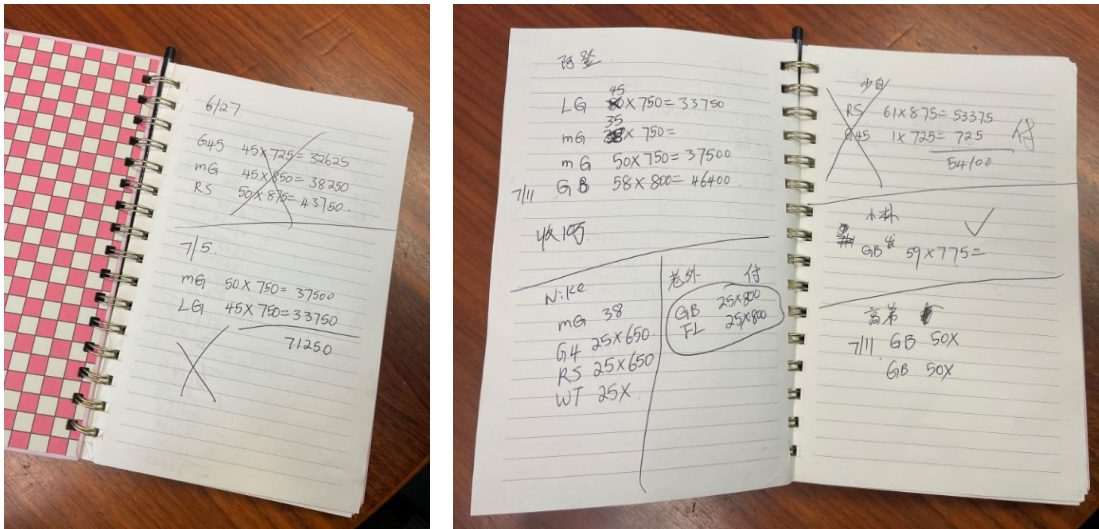 6/27
G45 45X725=32625
mG 45X850=38250
RS 50X875=43750
7/5
mG 50X750=37500
LG 45X750=33750
71250
45
LG X750=33750
35
mG X750=
mG 50X750=37500
7/11 GB 58X800=46400
收1万
Nike
mG 38
G4 25X650
RS 25X650
WT 25X
老外 付
GB 25X800
FL 25X800
小白
RS 61X875=53375
G45 1X725=725
付
54100
小林
GB 59X775=
7/11 GB 50X
GB 50X